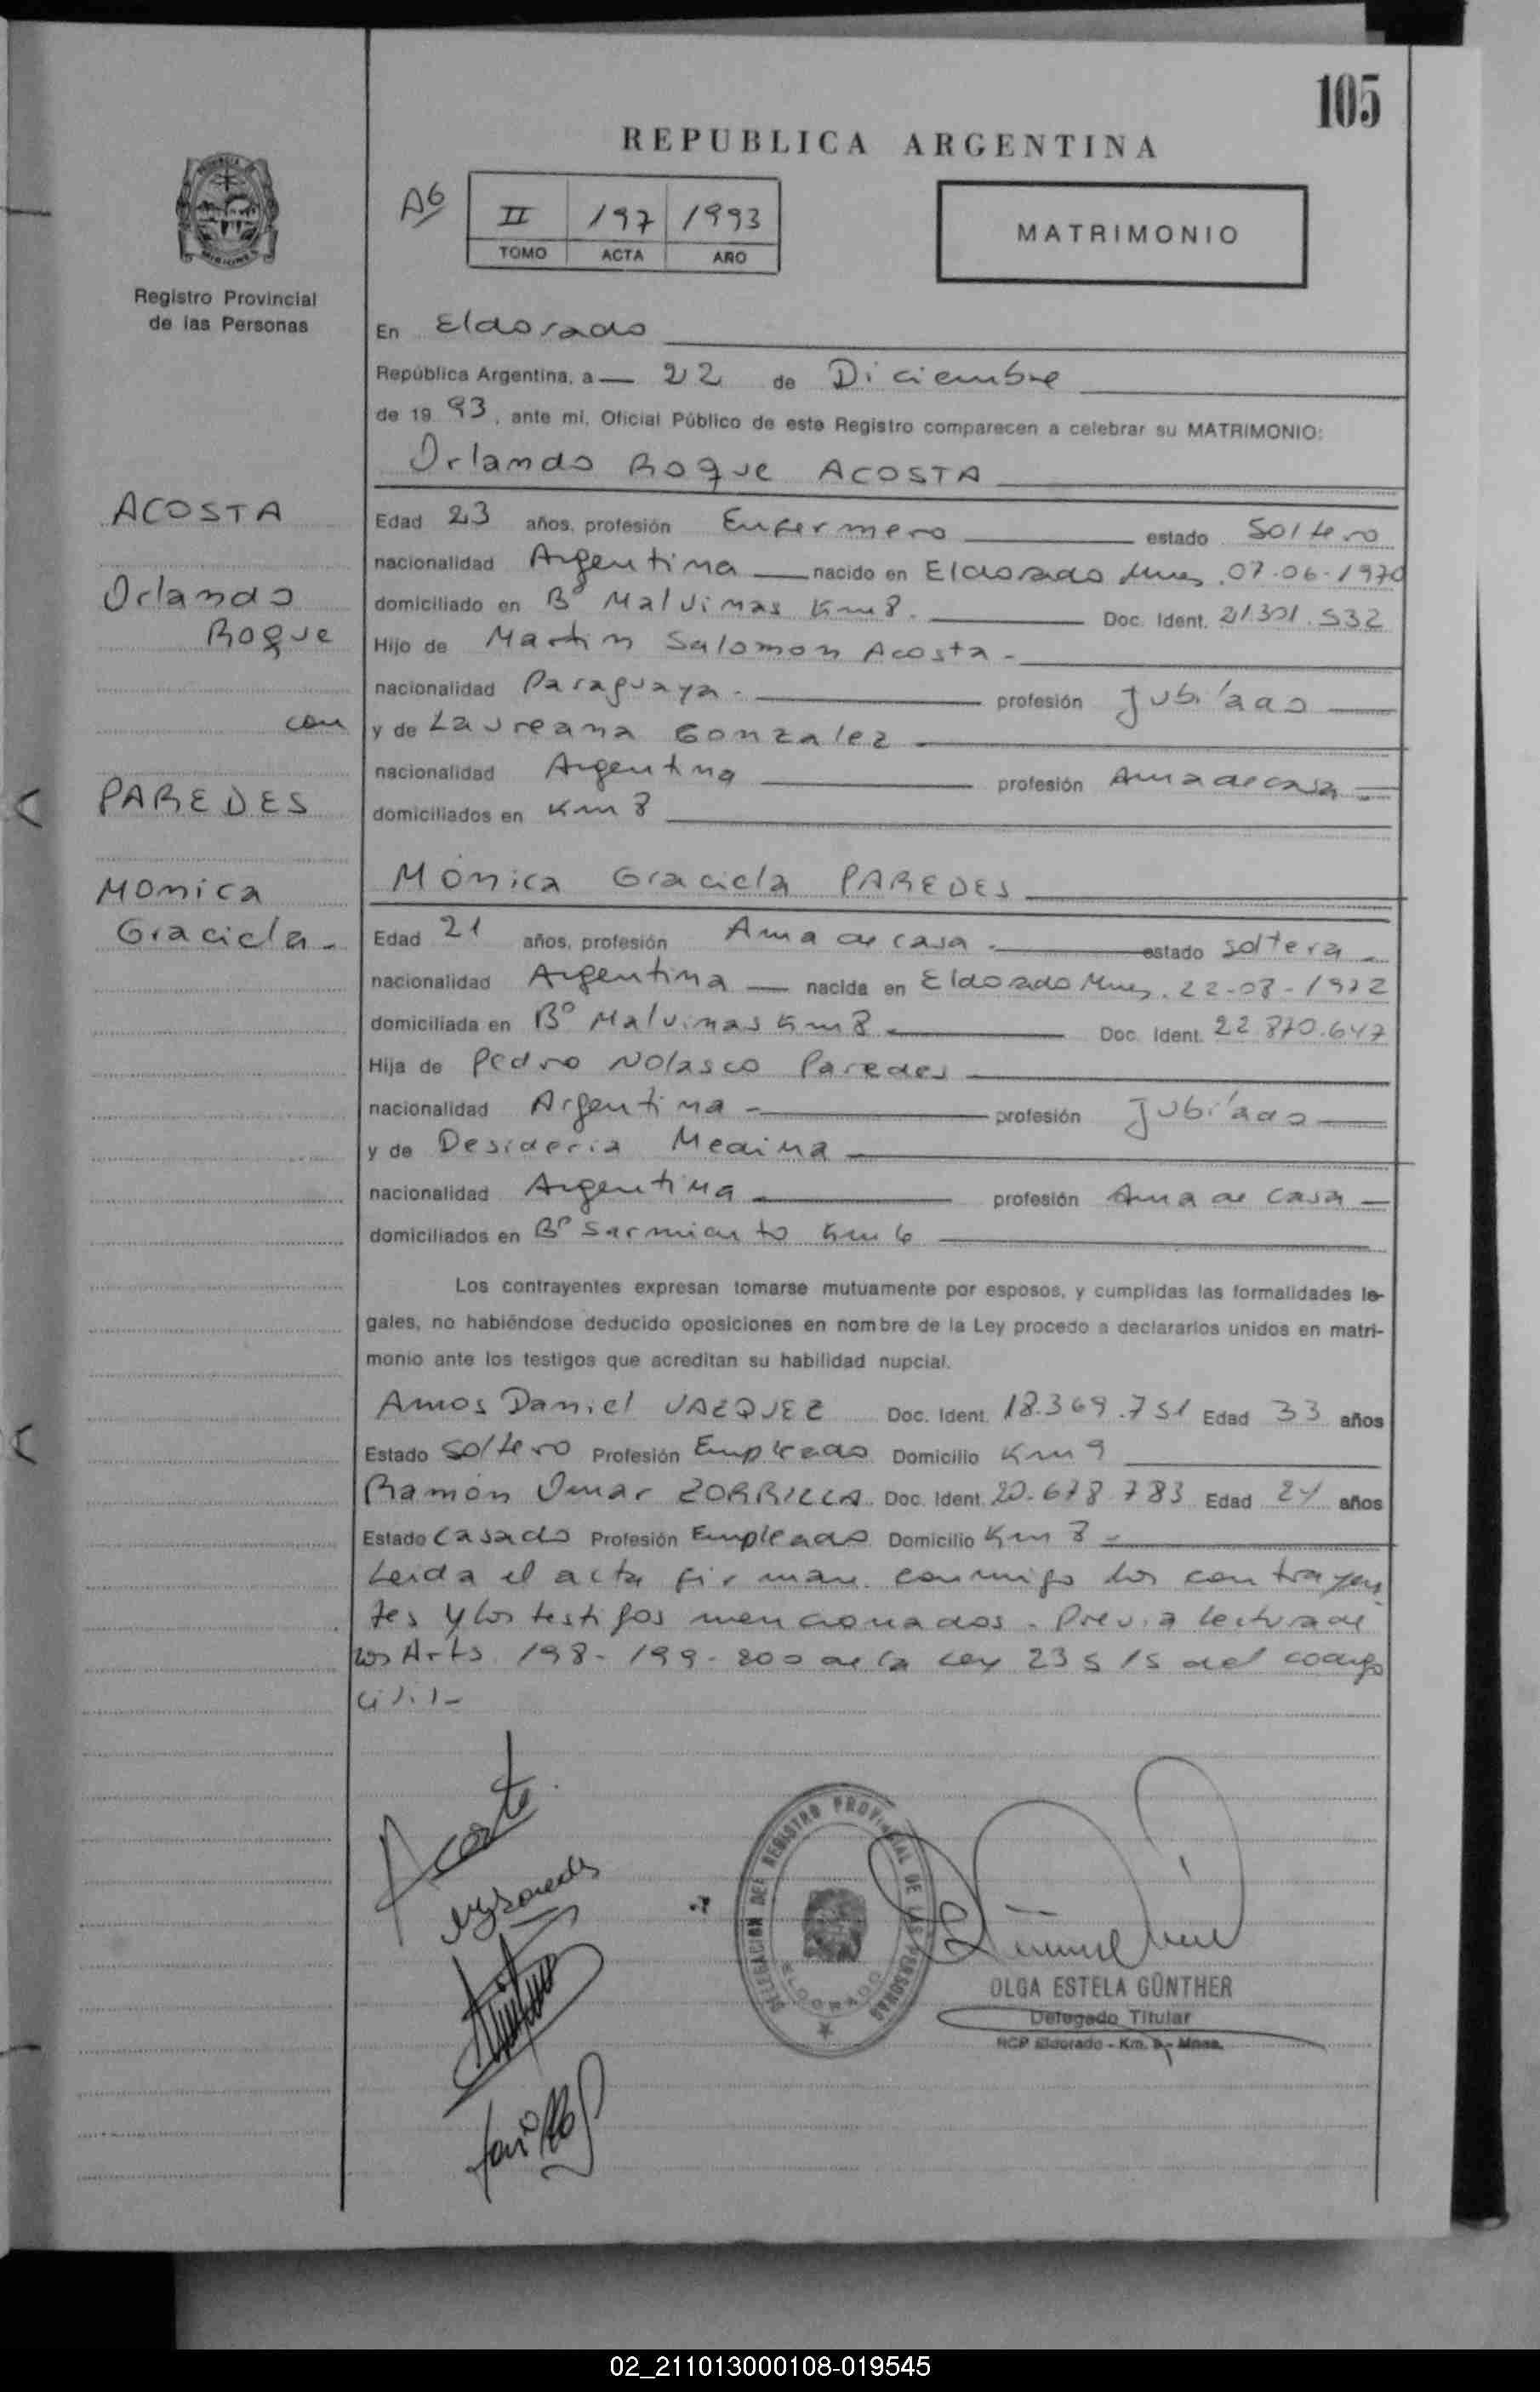 105
REPUBLICA ARGENTINA
A6
II 197 1993
TOMO ACTA AÑO
MATRIMONIO
Registro Provincial
de las Personas
En Eldorado
República Argentina, a 22 de Diciembre
de 19 93, ante mi, Oficial Público de este Registro comparecen a celebrar su MATRIMONIO:
Orlando Roque ACOSTA
ACOSTA
Orlando
Roque
con
PAREDES
Monica
Graciela -
Edad 23 años, profesión Enfermero estado Soltero
nacionalidad Argentina nacido en Eldorado Mnes. 07-06-1970
domiciliado en Bº Malvinas Km 8. Doc. Ident. 21.301.532
Hijo de Martin Salomon Acosta -
nacionalidad Paraguaya - profesión Jubilado
y de Laureana Gonzalez
nacionalidad Argentina profesión Ama de casa
domiciliados en Km 8
Mónica Graciela PAREDES
Edad 21 años, profesión Ama de casa - estado soltera
nacionalidad Argentina nacida en Eldorado Mnes. 22-08-1972
domiciliada en Bº Malvinas Km 8 Doc. Ident. 22.870.647
Hija de Pedro Nolasco Paredes
nacionalidad Argentina - profesión Jubilado
y de Desideria Medina
nacionalidad Argentina profesión Ama de casa
domiciliados en Bº Sarmiento Km 6
Los contrayentes expresan tomarse mutuamente por esposos, y cumplidas las formalidades le-
gales, no habiéndose deducido oposiciones en nombre de la Ley procedo a declararlos unidos en matri-
monio ante los testigos que acreditan su habilidad nupcial.
Amos Daniel VAZQUEZ Doc. Ident. 18.369.751 Edad 33 años
Estado Soltero Profesión Empleado Domicilio Km 9
Ramón Omar ZORRILLA Doc. Ident. 20.678.783 Edad 24 años
Estado Casado Profesión Empleado Domicilio Km 8 -
Leida el acta firman conmigo los contrayen
tes y los testigos mencionados. Previa lectura de
los Arts. 198-199-200 de la Ley 23515 del codigo
civil-
Acosta
DELEGACION DEL REGISTRO PROVINCIAL DE LAS PERSONAS
ELDORADO
OLGA ESTELA GÜNTHER
Delegado Titular
RCP Eldorado - Km. 9 - Mnes.
02_211013000108-019545